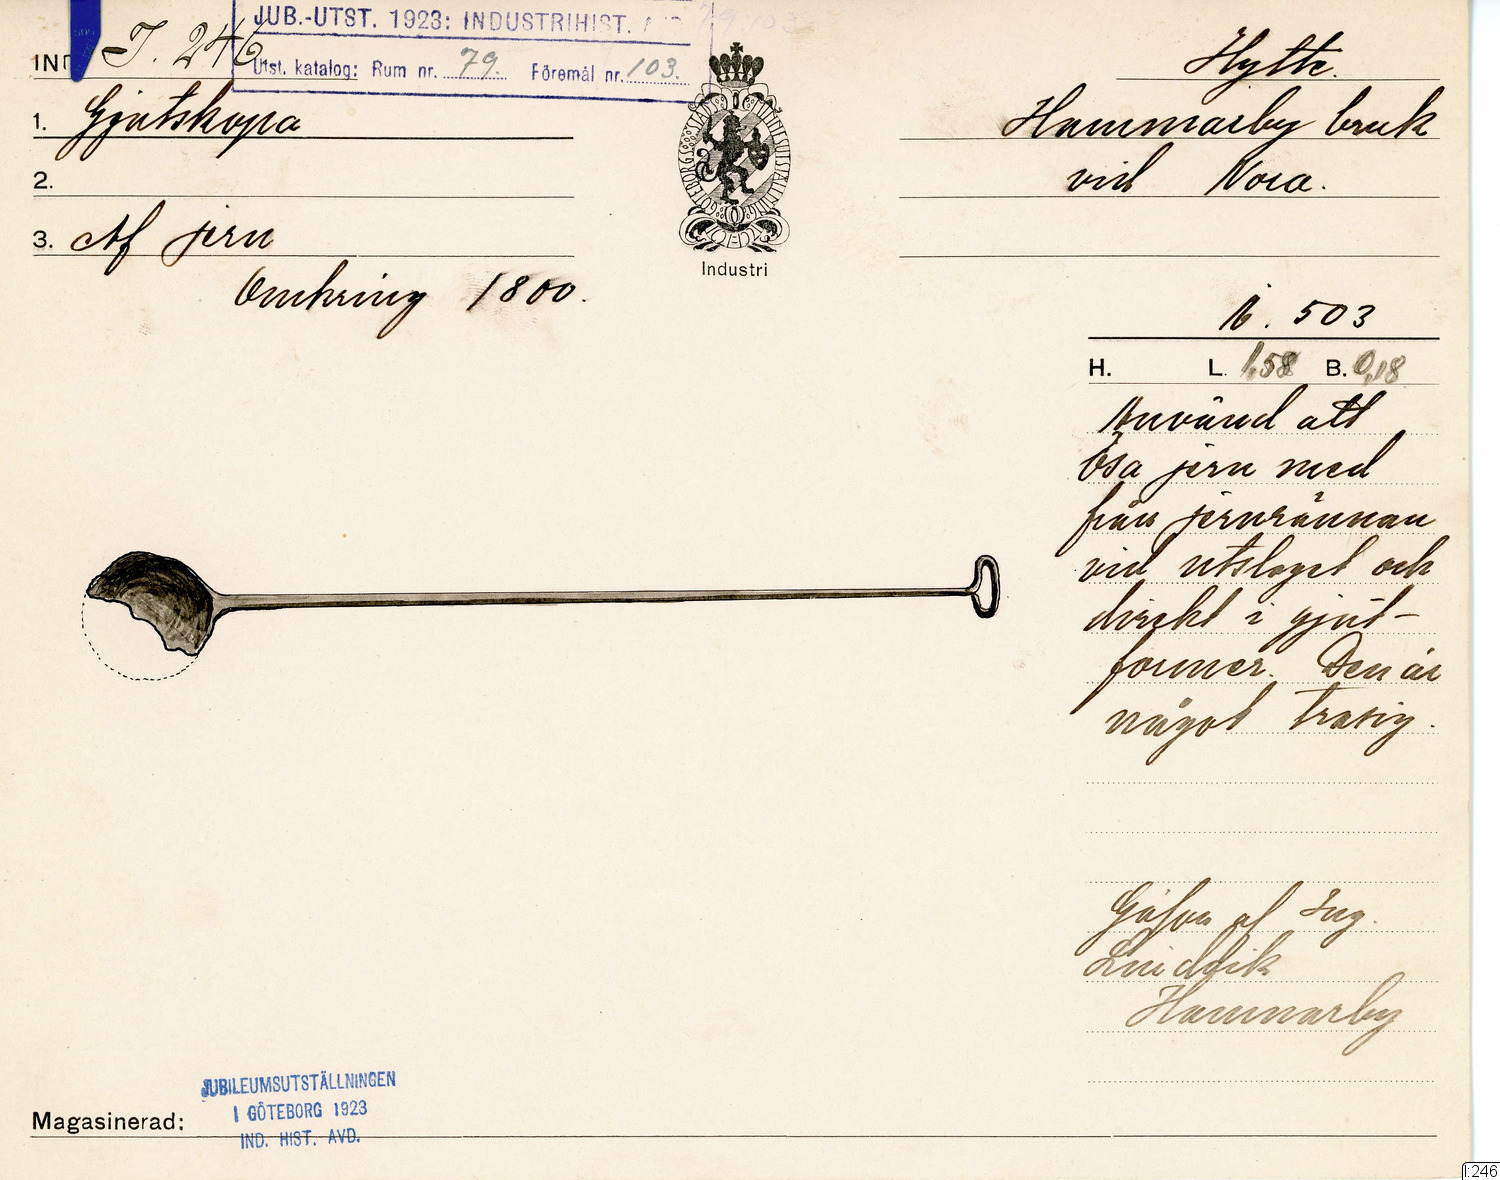 JUB.-UTST. 1923: INDUSTRIHIST.
IND. I. 246
Utst. katalog: Rum nr. 79. Föremål nr. 103.
1. Gjutskopa
2.
3. Af jern
Omkring 1800.
GÖTEBORGS STADS JUBILEUMSUTSTÄLLNING
Industri
Hytte.
Hammarby bruk
vid Nora.
N. 503
H. L. 1,58 B. 0,18
Använd att
ösa jern med
från jernrännan
vid utslaget och
direkt i gjut-
former. Den är
något trasig.
Gåfva af Ing.
Hammarby
Magasinerad:
JUBILEUMSUTSTÄLLNINGEN
I GÖTEBORG 1923
IND. HIST. AVD.
I:246